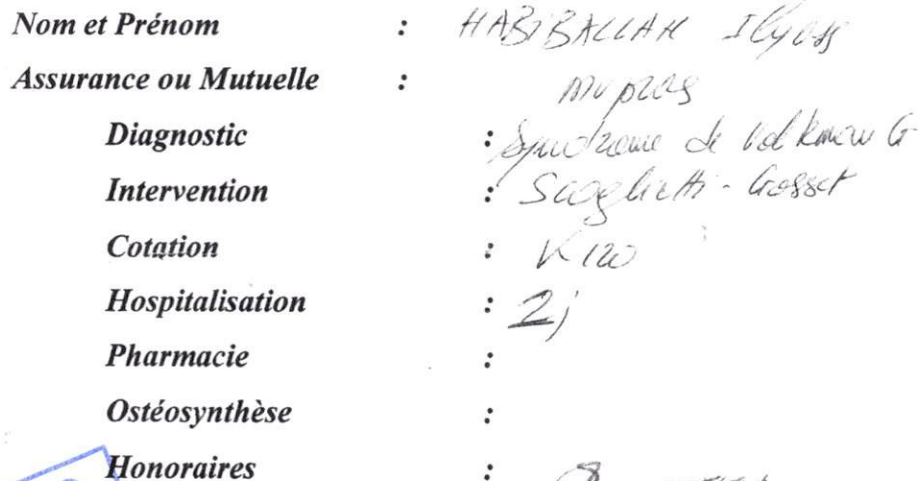 Nom et Prénom : HABIBALLAH Ilyass
Assurance ou Mutuelle : mupras
Diagnostic : Syndrome de Volkmann G
Intervention : Scaglietti - Gosset
Cotation : K 120
Hospitalisation : 2j
Pharmacie :
Ostéosynthèse :
Honoraires :